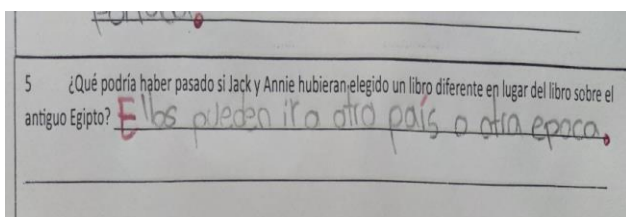 5 ¿Qué podría haber pasado si Jack y Annie hubieran elegido un libro diferente en lugar del libro sobre el
antiguo Egipto? Ellos pueden ir a otro país o otra epoca.